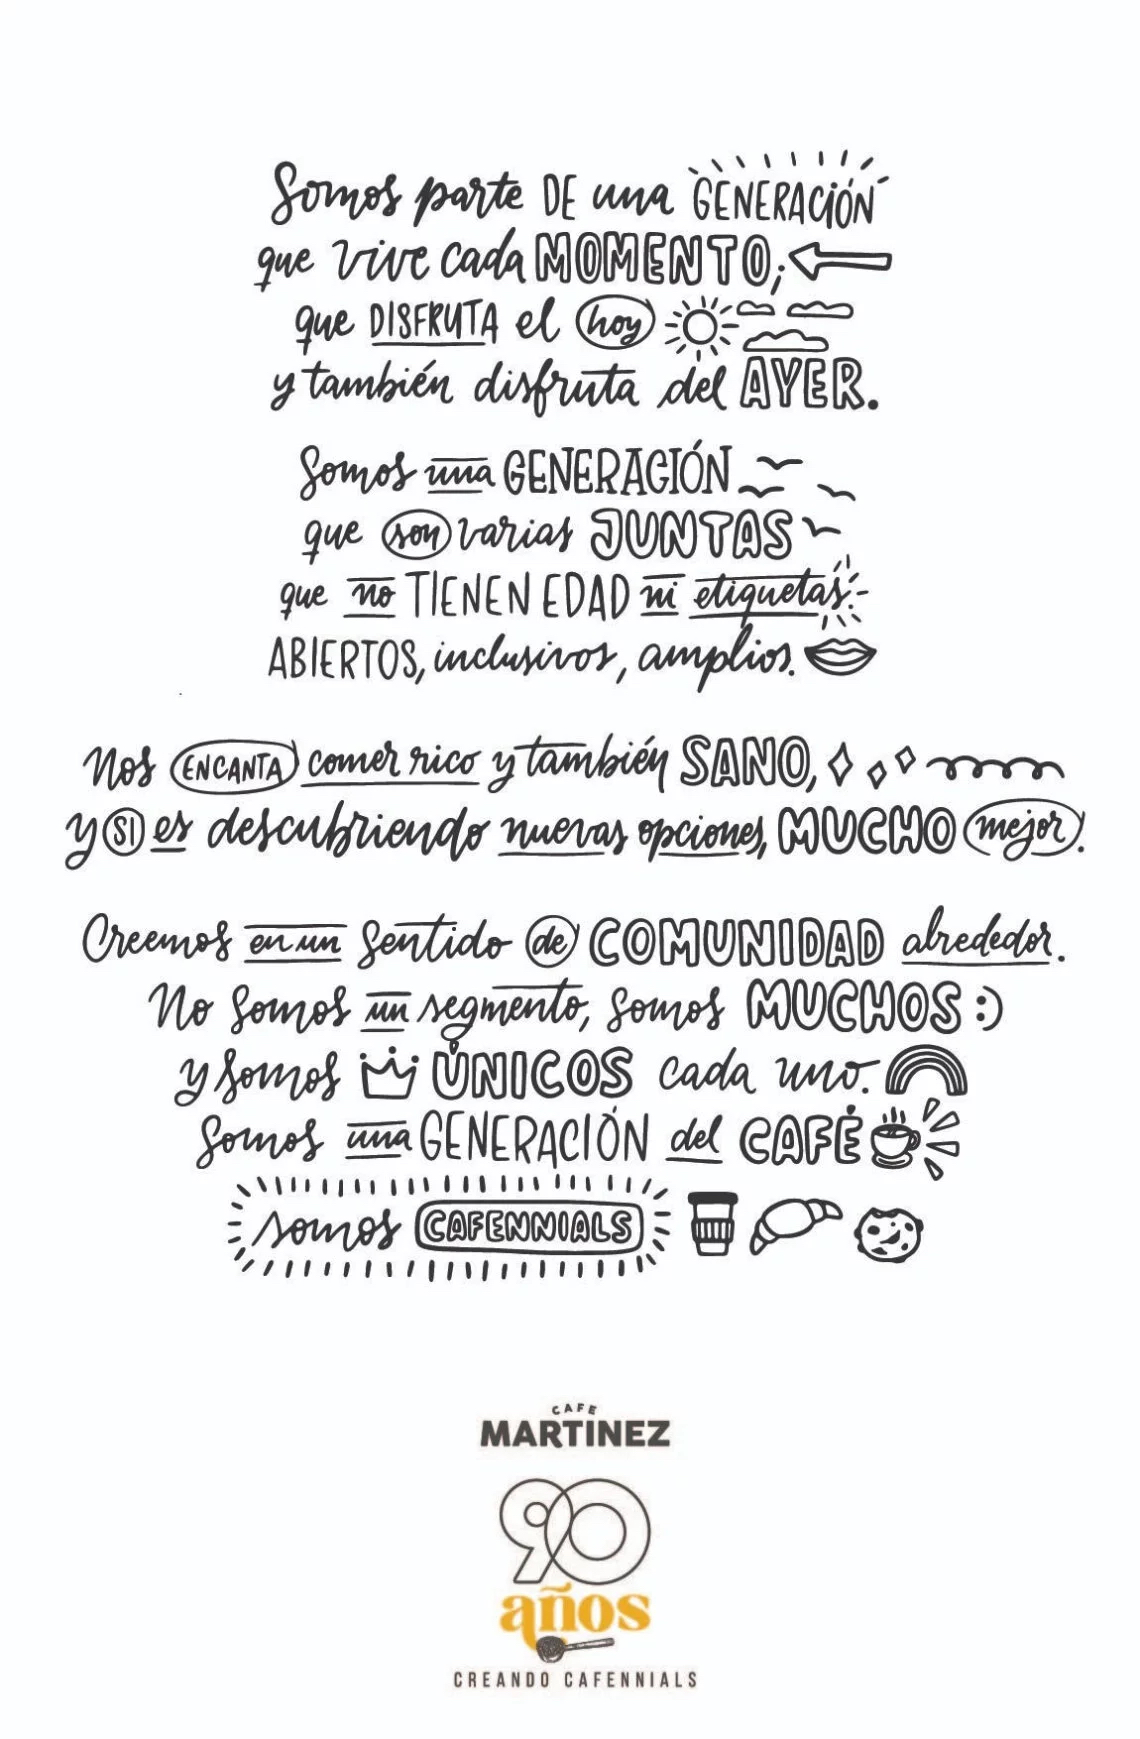 Somos parte DE una GENERACIÓN
que vive cada MOMENTO;
que DISFRUTA el hoy
y también disfruta del AYER.
Somos una GENERACIÓN
que son varias JUNTAS
que no TIENEN EDAD ni etiquetas.
ABIERTOS, inclusivos, amplios.
Nos ENCANTA comer rico y también SANO,
y SI es descubriendo nuevas opciones, MUCHO mejor.
Creemos en un sentido de COMUNIDAD alrededor.
No somos un segmento, somos MUCHOS :)
y somos ÚNICOS cada uno.
Somos una GENERACIÓN del CAFÉ
somos CAFENNIALS
CAFE
MARTÍNEZ
90
años
CREANDO CAFENNIALS